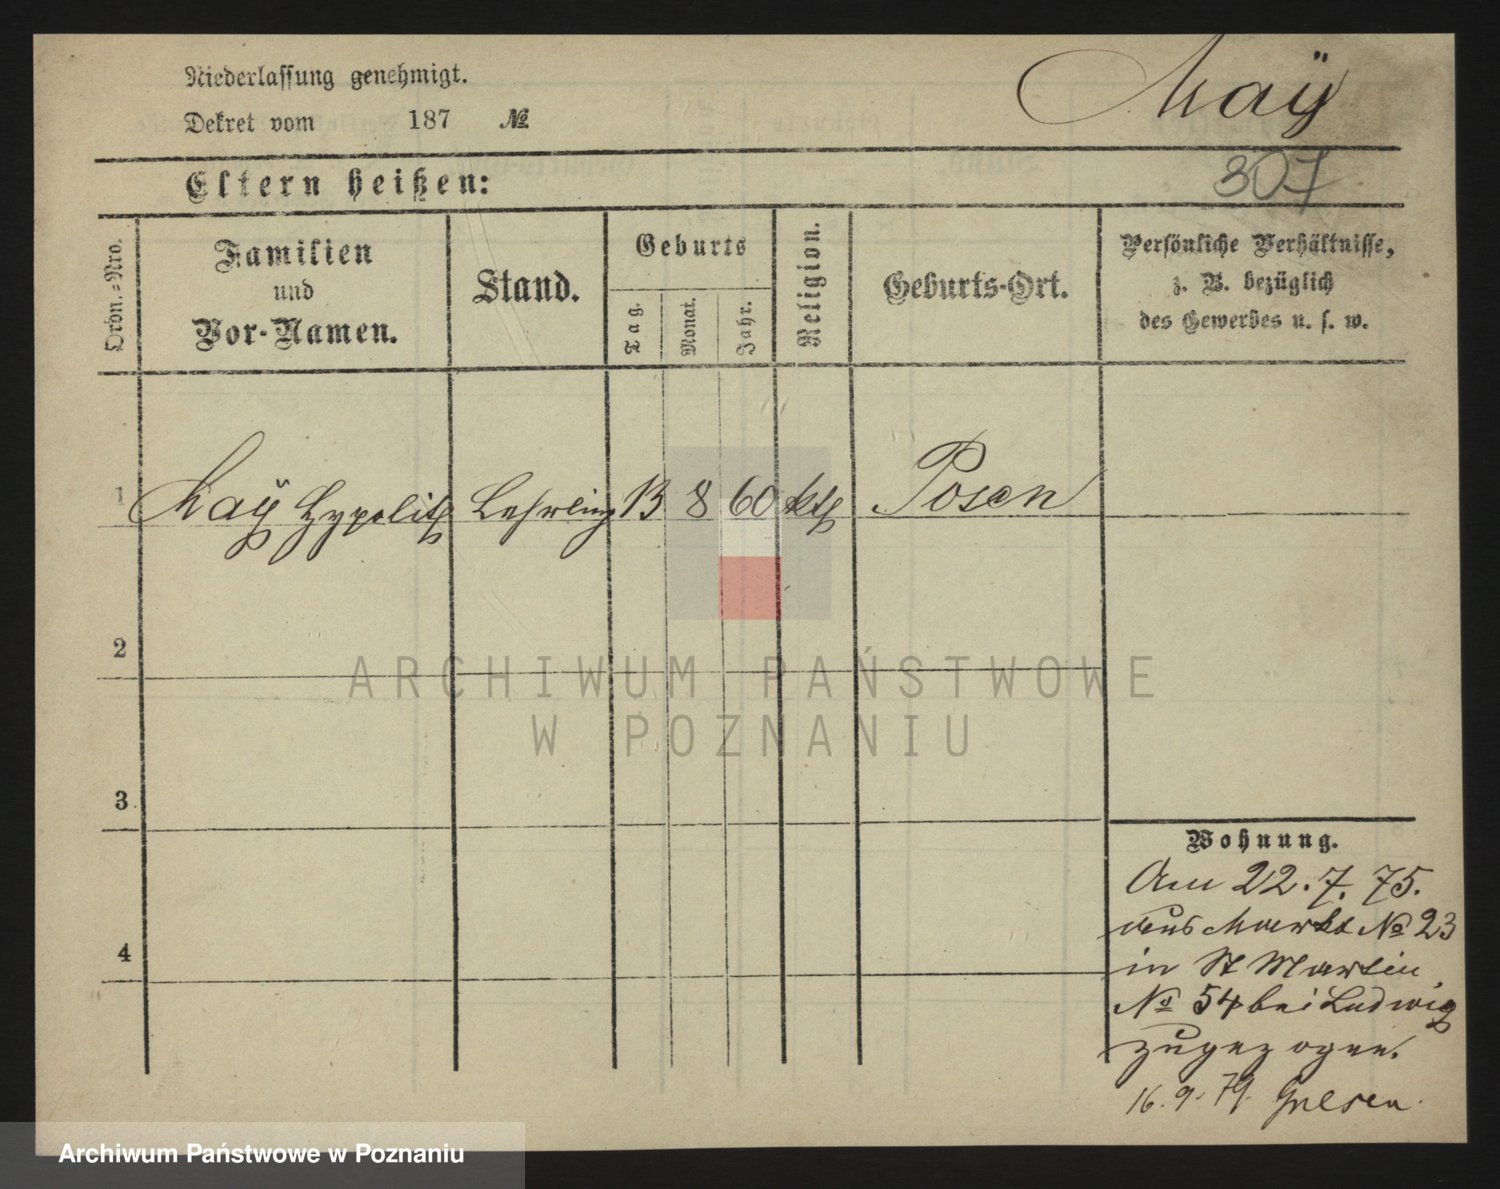 Niederlassung genehmigt.
Maÿ
Dekret vom 187 №
307
Eltern heißen:
Ordn.-Nro.
Familien
und
Vor-Namen.
Stand.
Geburts
Tag.
Monat.
Jahr.
Religion.
Geburts-Ort.
Persönliche Verhältnisse,
z. B. bezüglich
des Gewerbes u. s. w.
1 Maÿ Hypolith Lehrling 13 8 60 kth Posen
2
ARCHIWUM PAŃSTWOWE
W POZNANIU
3
Wohnung.
Am 22.7.75.
aus Markt № 23
4
in St Martin
№ 54 bei Ludwig
zugezogen.
16.9.79. Gnesen.
Archiwum Państwowe w Poznaniu